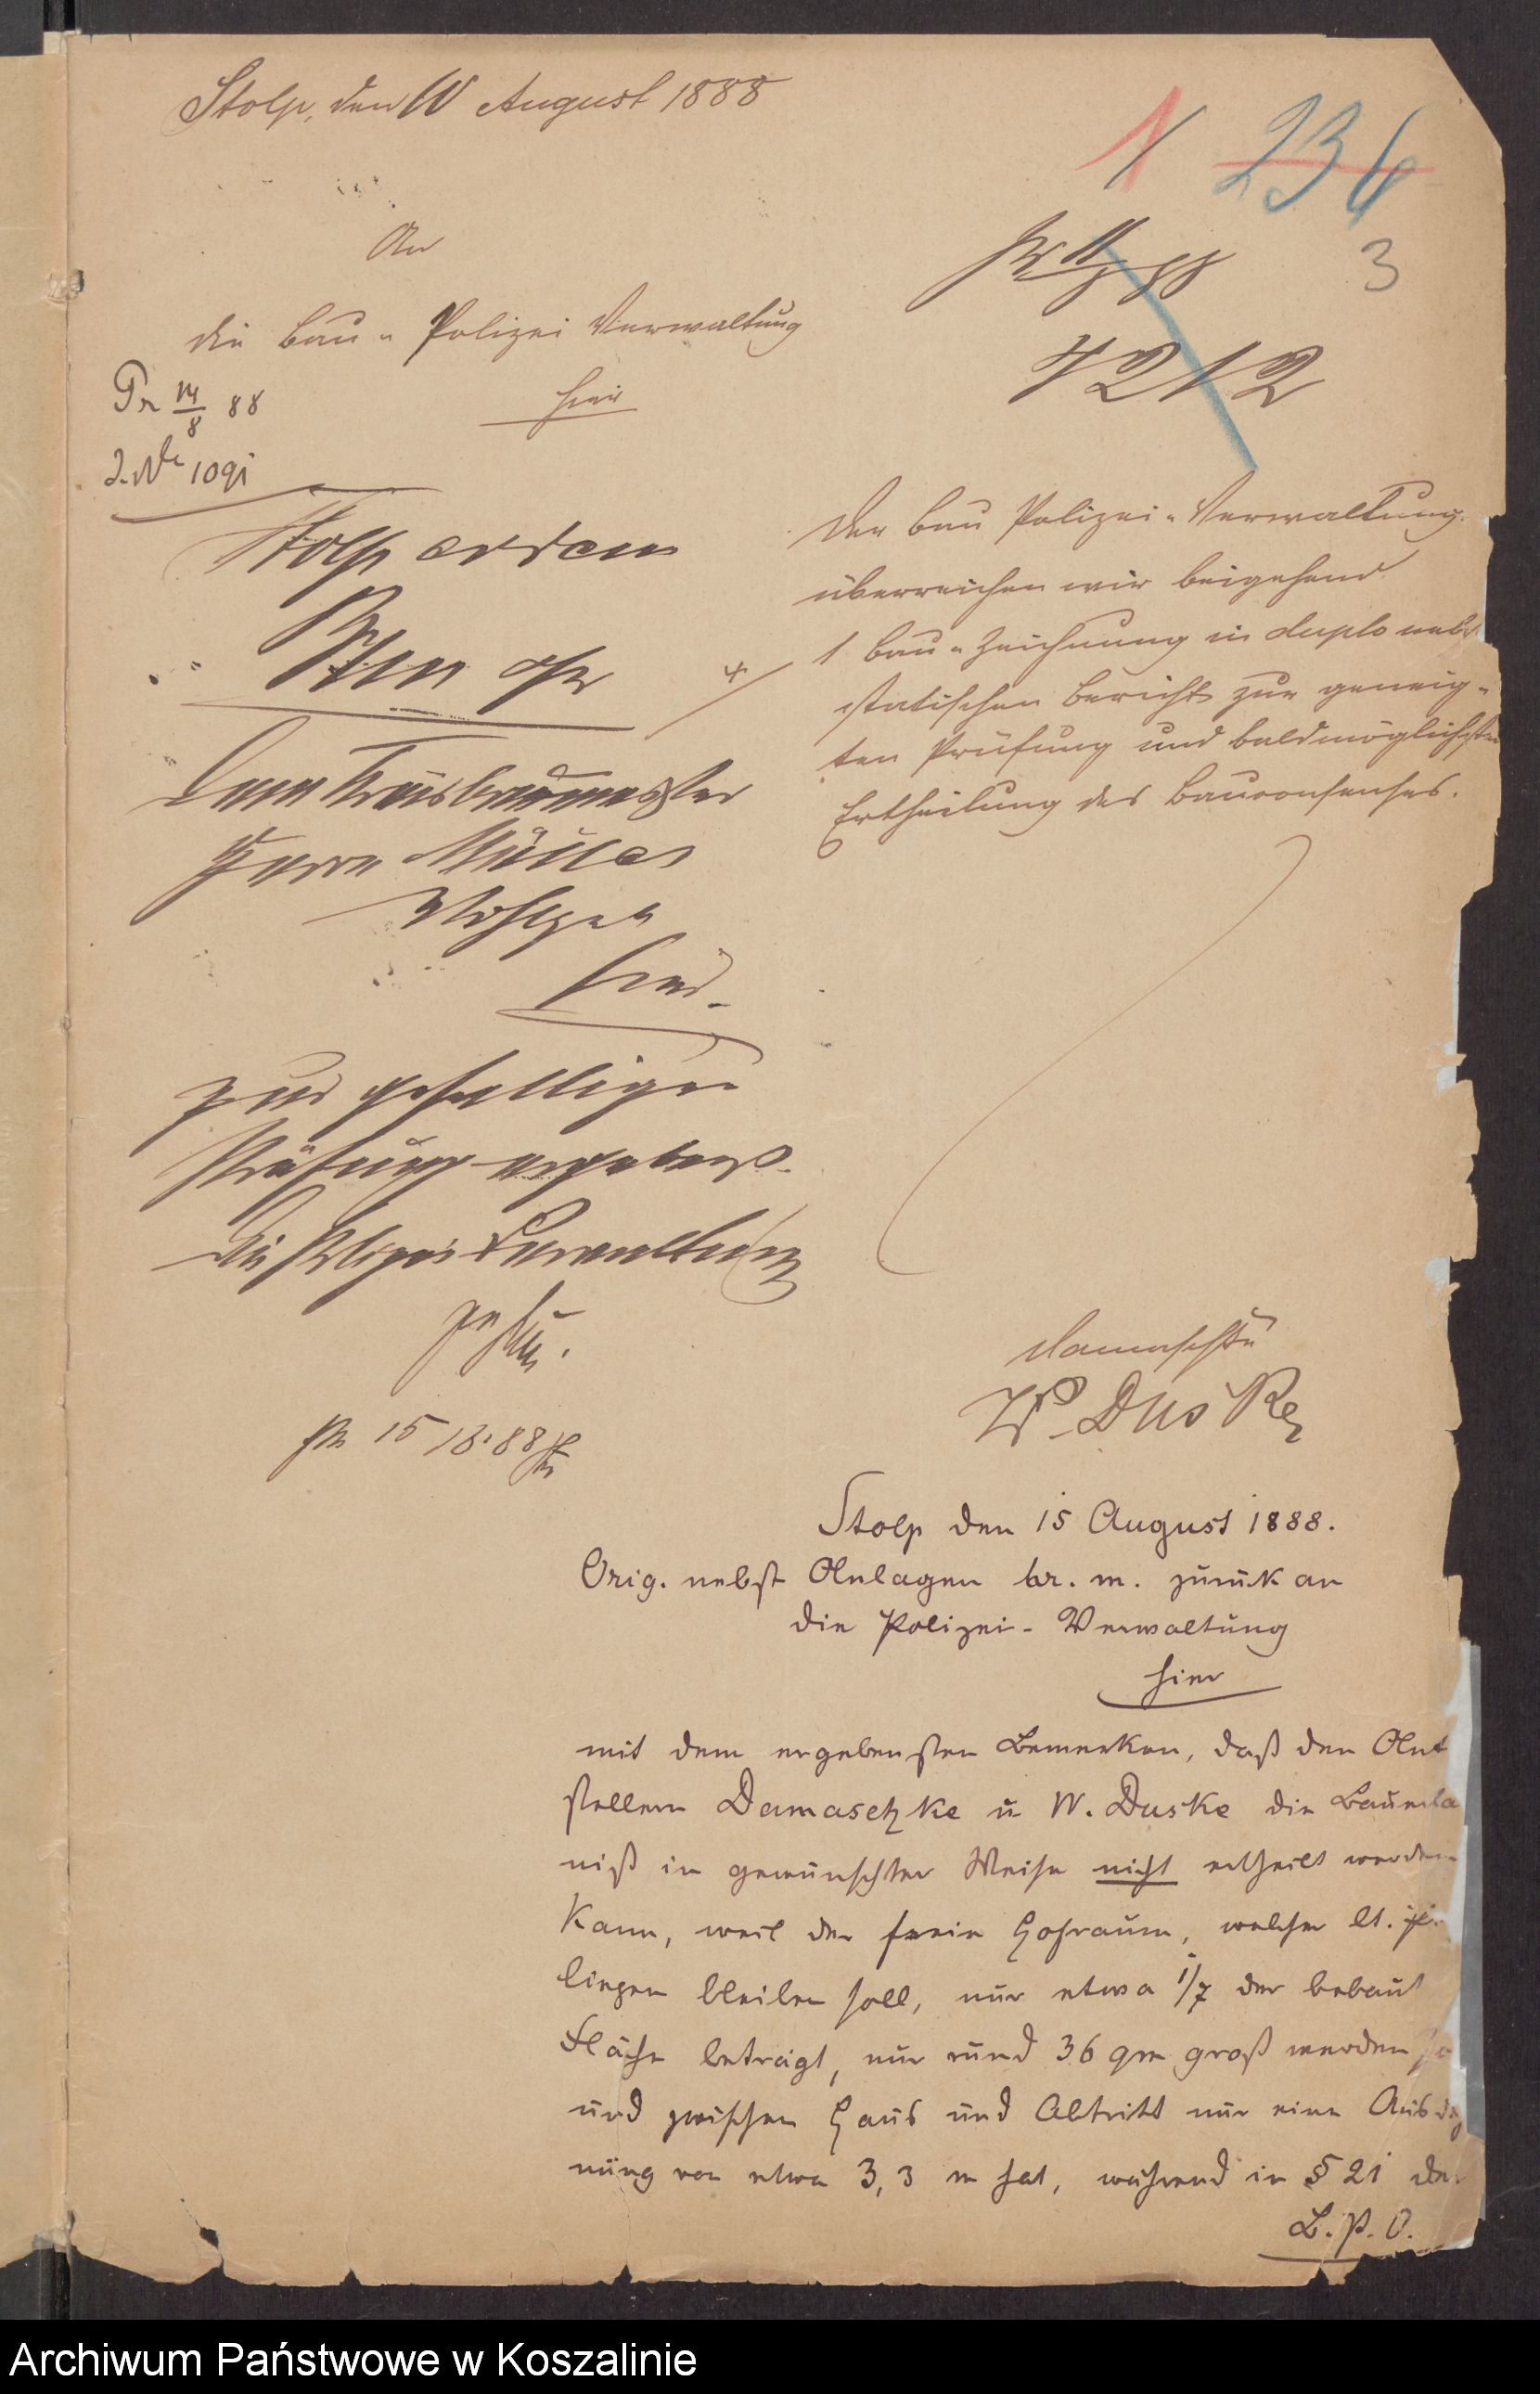 Stolp, den 10 August 1888
1 236
3
An
die Bau- Polizei Verwaltung
hier
Pr 14/8 88
J.Nr 1091
7212
Der Bau Polizei-Verwaltung
überreichen wir beigehend
1 Bau-Zeichnung in duplo nebst
statischen Bericht zur geneig-
ten Prüfung und baldmöglichsten
Ertheilung des Bauconsenses.
Damaschke
W. Duske
Stolp
Dem Kreisbaumeister
Herrn Müller
Wohlgeb
hier.
zur gefälligen
Prüfung ergebenst.
Die Polizei Verwaltung
pr 15/8.88
Stolp den 15 August 1888.
Orig. nebst Anlagen br. m. zurück an
die Polizei-Verwaltung
hier
mit dem ergebensten Bemerken, daß den Ant
stellern Damaschke u W. Duske die Bauerla
niß in gewünschter Weise nicht ertheilt werden
kann, weil der freie Hofraum, welcher lt.
liegen bleiben soll, nur etwa 1/7 der bebaut
Fläche beträgt, nur rund 36 qm groß werden so
und zwischen Haus und Abtritt nur eine Ausdeh
nung von etwa 3,3 m hat, während in § 21 der
B.P.O.
Archiwum Państwowe w Koszalinie